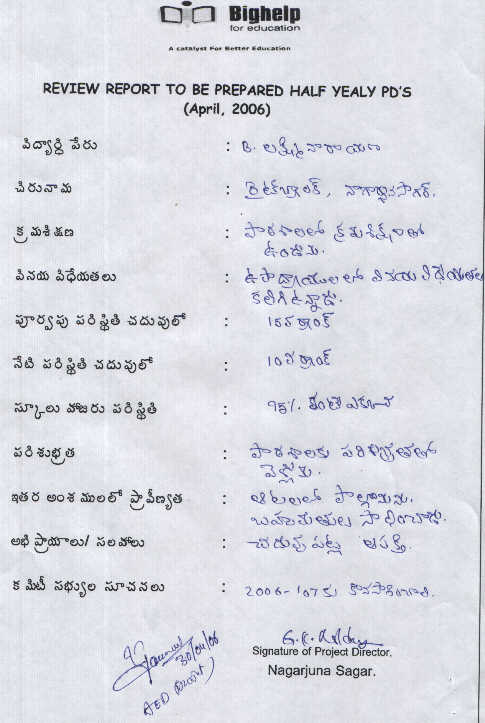 Bighelp
for education
A catalyst For Better Education
REVIEW REPORT TO BE PREPARED HALF YEALY PD'S
(April, 2006)
విద్యార్ధి పేరు : B. లక్ష్మి నారాయణ
చిరునామ : రైట్‌బ్యాంక్, నాగార్జునసాగర్.
క్రమశిక్షణ : పాఠశాలలో క్రమశిక్షణతో
ఉండును.
వినయ విధేయతలు : ఉపాధ్యాయులలో వినయ విధేయతలు
కలిగి ఉన్నాడు.
పూర్వపు పరిస్థితి చదువులో : 15వ ర్యాంక్
నేటి పరిస్థితి చదువులో : 10వ ర్యాంక్
స్కూలు హాజరు పరిస్థితి : 95%
పరిశుభ్రత : పాఠశాలకు పరిశుభ్రతతో
వెళ్లును.
ఇతర అంశములలో ప్రావీణ్యత : ఆటలలో పాల్గొనును.
బహుమతులు సాధించాడు.
అభిప్రాయాలు/ సలహాలు : చదువు పట్ల ఆసక్తి.
కమిటీ సభ్యుల సూచనలు : 2006-'07కు కొనసాగించాలి.
30/04/06
Signature of Project Director.
Nagarjuna Sagar.